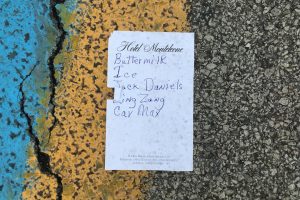 Hotel Monteleone
Buttermilk
Ice
Jack Daniels
Ling Zang
Car Max